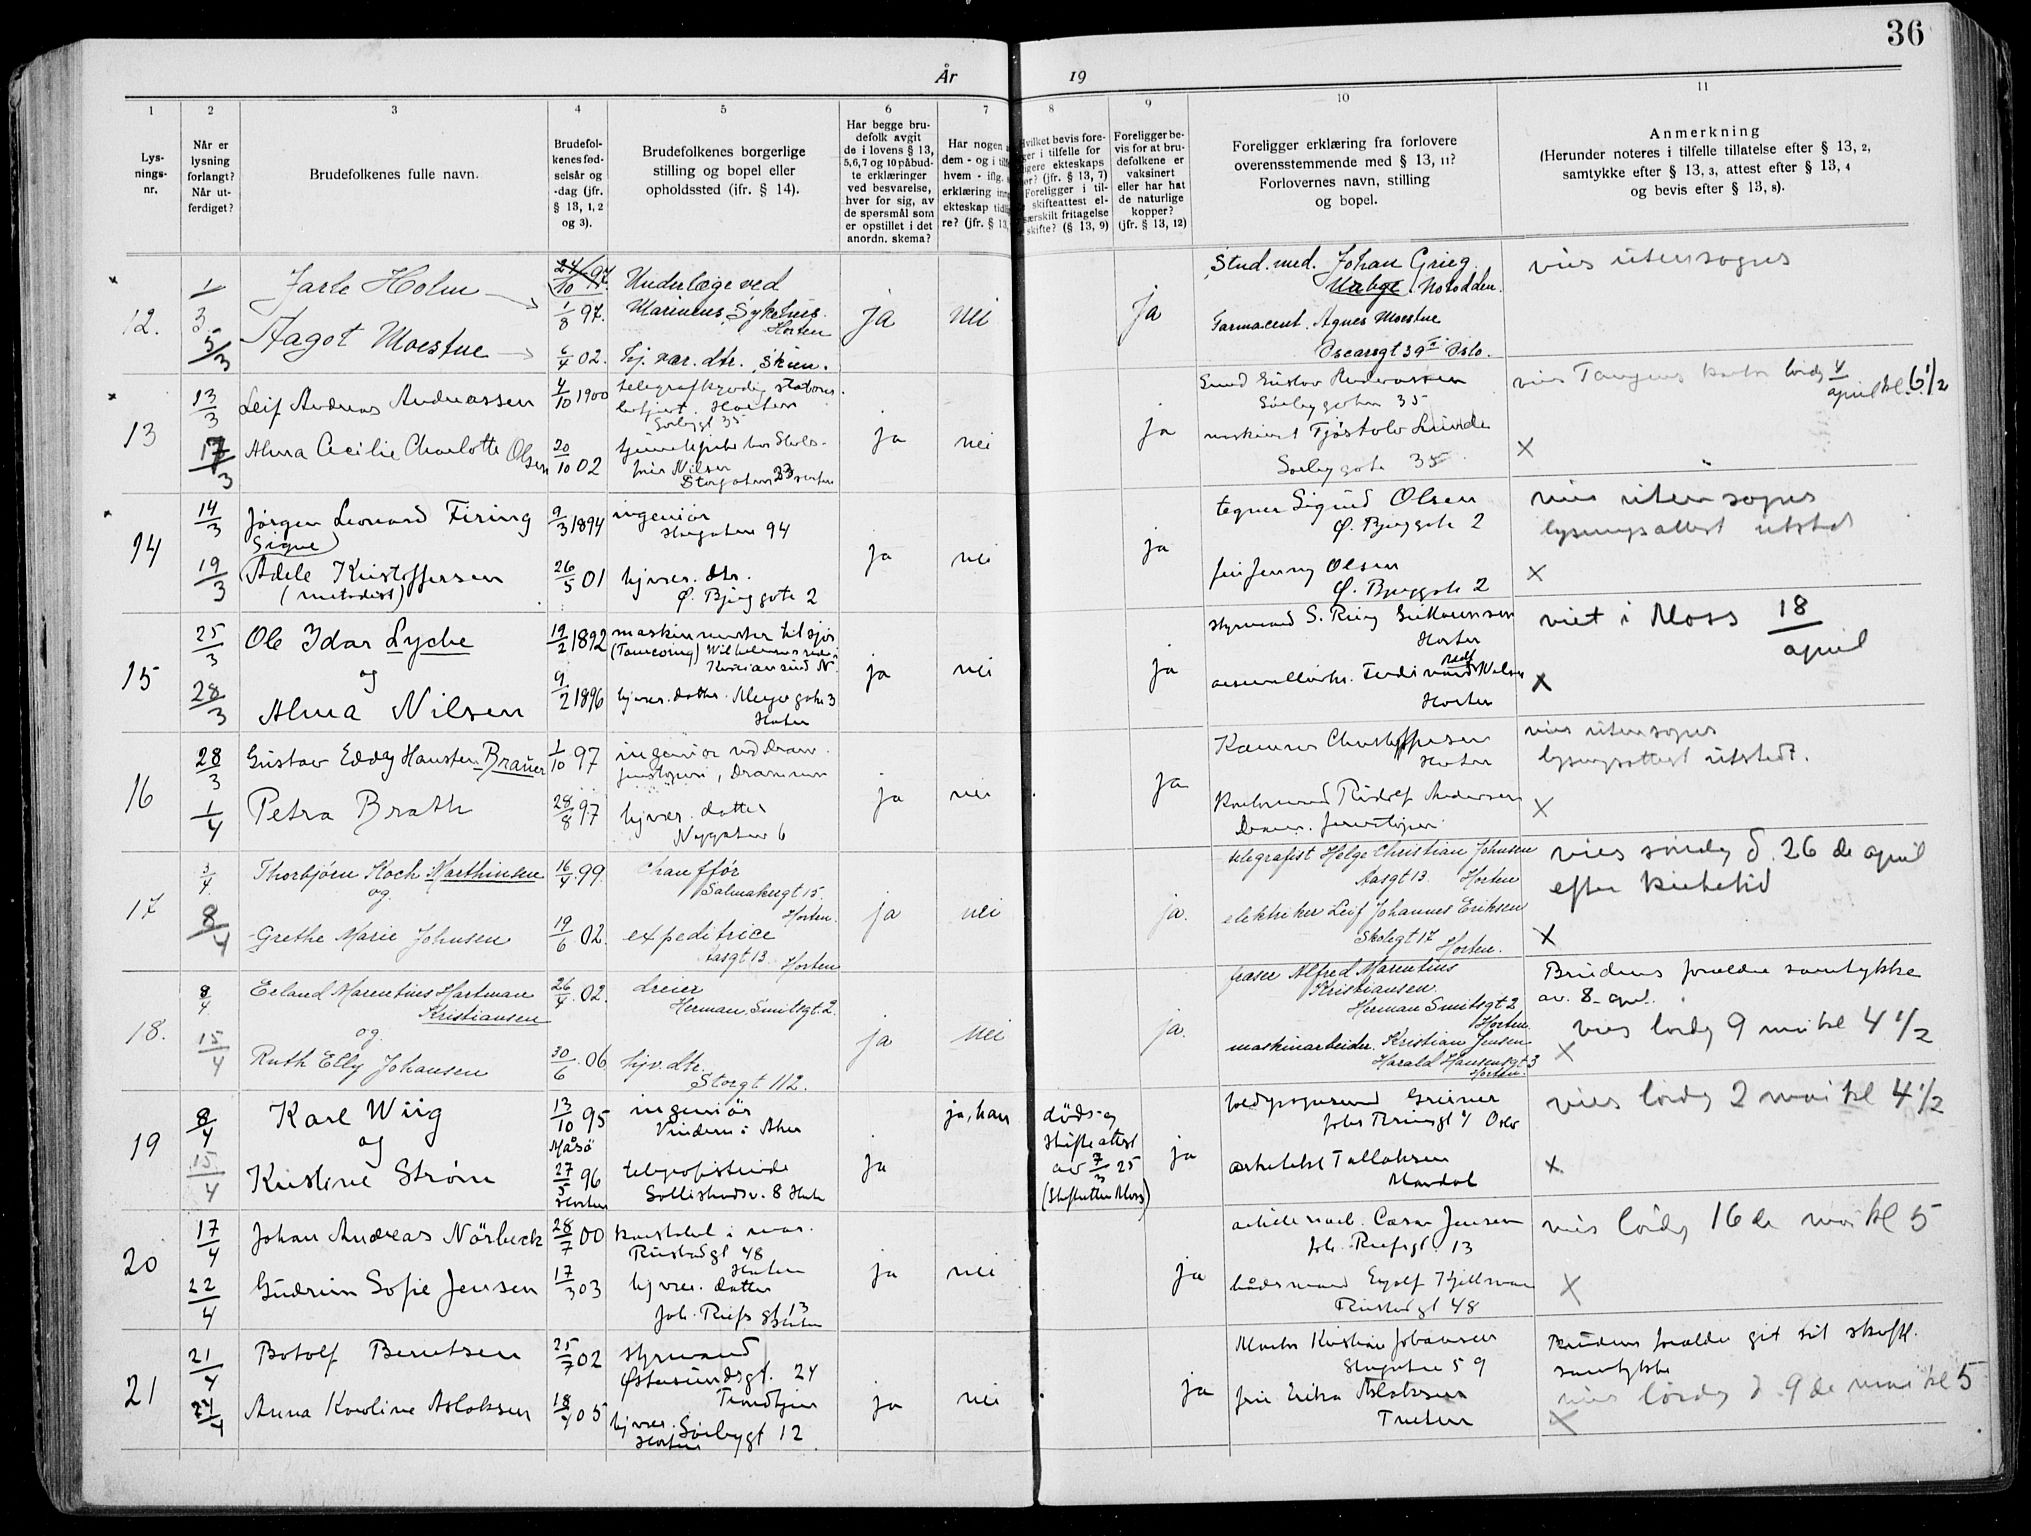 36
År
19
1
2
3
4
5
6
7
8
9
10
11
Lys-
nings-
nr.
Når er
lysning
forlangt?
Når ut-
ferdiget?
Brudefolkenes fulle navn.
Brudefol-
kenes fød-
selsår og
-dag (jfr.
§ 13, 1, 2
og 3).
Brudefolkenes borgerlige
stilling og bopel eller
opholdssted (ifr. § 14).
Har begge bru-
defolk avgit
de i lovens § 13,
5,6,7 og 10 påbud-
te erklæringer
ved besvarelse,
hver for sig, av
de spørsmål som
er opstillet i det
anordn. skema?
Har nogen
dem - og i
hvem - iflg.
erklæring
ekteskap
re? (jfr. § 13,
Hvilket bevis fore-
i tilfelle for
ekteskaps
(jfr. § 13, 7)
Foreligger i til-
skifteattest el-
særskilt fritagelse
skifte? (§ 13, 9)
Foreligger be-
vis for at bru-
defolkene er
vaksinert
eller har hat
de naturlige
kopper?
(jfr. § 13, 12)
Foreligger erklæring fra forlovere
overensstemmende med § 13, 11?
Forlovernes navn, stilling
og bopel.
Anmerkning
(Herunder noteres i tilfelle tillatelse efter § 13, 2,
samtykke efter § 13, 3, attest efter § 13, 4
og bevis efter § 13, 8).
12.
1/3
5/3
Jarle Holm
Aagot Moestue
24/10 97.
1/8 97.
6/4 02.
Underlæge ved
Marinens Sykehus.
Horten
hj. vær. dtr. Skien.
ja
nei
ja
Stud. med. Johan Grieg.
Notodden.
Farmaceut. Agnes Moestue
Oscarsgt 39 II Oslo.
vies utensogns
13
13/3
17/3
Leif Andreas Andreassen
Alma Cecilie Charlotte Olsen
4/10 1900
20/10 02
telegrafkyndig stations-
betjent. Horten
Sørbygt 35
Nilsen
Storgaten 33 Horten
ja
nei
ja
Gustav Andreassen
Sørbygaten 35
maskinist Tjøstolv Lunde
Sørbygate 35
vies Tangens kontor lørdag 4/april kl. 6 1/2
X
14
14/3
19/3
Jørgen Leonard Firing
Signe
Adele Kristoffersen
(metodist)
9/3 1894
26/5 01
ingeniør
Storgaten 94
hj vær. dtr.
Ø. Bjerggate 2
ja
nei
ja
tegner Sigurd Olsen
Ø. Bjerggate 2
frk Jenny Olsen
Ø. Bjerggate 2
vies utensogns
lysningsattest utstedt
X
15
25/3
28/3
Ole Idar Lyche
og
Alma Nilsen
19/2 1892
9/2 1896
maskinmester til sjøs
Kristiansund N.
hj vær. datter. Meyergate 3
Horten
ja
nei
ja
styrmand S.
Horten
Ferdinand Nilsen
Horten
viet i Moss 18/april
X
16
28/3
1/4
Gustav Eddy Hansten Brauer
Petra Brath
1/10 97
28/8 97
ingeniør ved Dram.
jernstøperi, Drammen
hj vær. datter
Nygaten 6
ja
nei
ja
Christoffersen
Horten
Rudolf Andersen
Dram. jernstøperi
vies utensogns
lysningsattest utstedt.
X
17
3/4
8/4
Thorbjørn Koch Marthinsen
og
Grethe Marie Johnsen
16/4 99.
19/6 02.
Chauffør
Salmakergt 15.
Horten.
expeditrice
Aasgt 13. Horten
ja
nei
ja.
telegrafist Helge Christian Johnsen
Aasgt 13. Horten
elektriker Leif Johannes Eriksen
Skolegt 17 Horten.
vies søndag d. 26 de april
efter kirketid
X
18.
8/4
15/4
Erland Marentius Hartman
Kristiansen
og
Ruth Elly Johansen
26/4 02.
30/6 06
dreier
Herman Smitsgt. 2.
hjv. dtr.
Storgt 112.
ja
nei
ja.
fraser Alfred Marentius
Kristiansen.
Herman Smitsgt 2
Horten.
maskinarbeider. Kristian Jensen
Harald Hansensgt 3
Horten.
Brudens forældre samtykke
av. 8. april.
vies lørdag 9 mai kl 4 1/2
X
19
8/4
15/4
Karl Wiig
og
Kristine Strøm
13/10 95
Måsø
27/5 96
Horten
ingeniør
Vinderen i Aker
telegrafistinde
Sollistrandsv. 8 Horten
ja
ja, han
døds- og
skifteattest
av 7/3 25
(Skifteretten Moss)
ja
Greiner
Oslo
arkitekt Tallaksen
Mandal
vies lørdag 2 mai kl 4 1/2
X
20
17/4
22/4
Johan Andreas Nørbeck
Gudrun Sofie Jensen
28/7 00
17/3 03
konstabel i mar.
Rustadgt 48
Horten
hj vær. datter
Joh. Riefs gt 13
Horten
ja
nei
ja
Jensen
Joh. Riefsgt. 13
bådsmand Eyolf Kjellman
Rustadgt 48
vies lørdag 16 de mai kl 5
X
21
21/4
24/4
Botolf Berntsen
Anna Karoline Aslaksen
25/7 02
18/4 05
styrmand
Østersundsgt. 24
Trondhjem
hj vær. Sørbygt 12
Horten
ja
nei
ja
Kristian Johansen
Storgaten 59
frk Erika Aslaksen
Brudens forældre git sit skriftl.
samtykke
vies lørdag d. 9 de mai kl 5
X